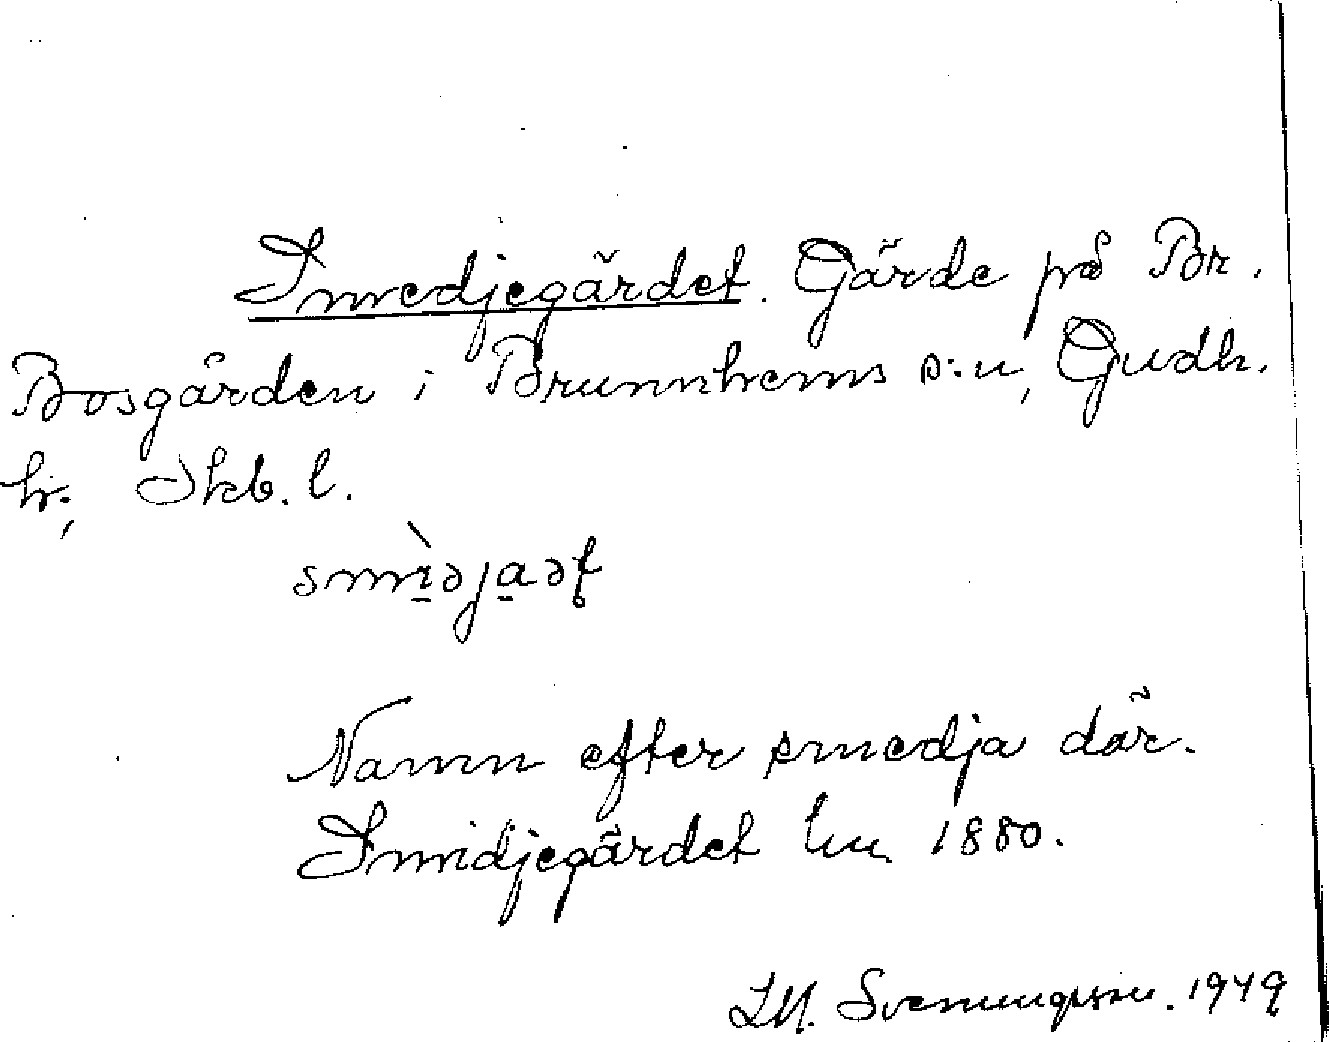 Smedjegärdet. Gärde på Br.
Bosgården i Brunnhems s:n, Gudh.
hr., Skb. l.
smìəjaəț
Namn efter smedja där.
Smidjegärdet Lm 1880.
LM. Svenungsson. 1949